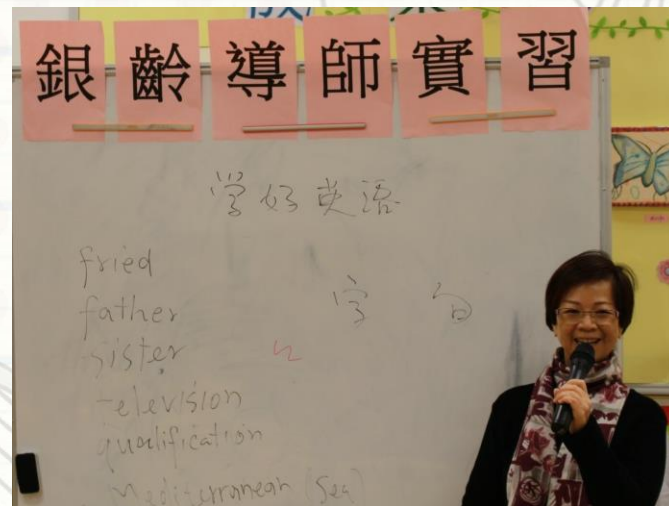 銀齡導師實習
学好英语
fried
father 字 句
sister
television
qualification
Mediterranean (Sea)